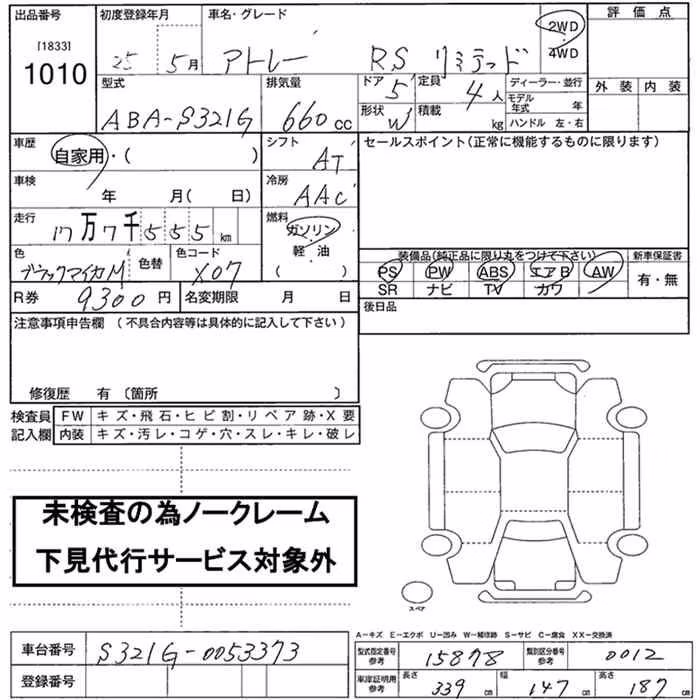 出品番号 初度登録年月 車名・グレード 評価点
[1833] 1010 25 5月 アトレー RS リミテッド 2WD・4WD
型式 排気量 ドア 5 定員 4人 ディーラー・並行 外装 内装
ABA-S321G 660cc 形状 W 積載 kg モデル年式 年
ハンドル 左・右
車歴 自家用・( ) シフト AT セールスポイント(正常に機能するものに限ります)
車検 年 月( 日) 冷房 AAC
走行 17万7千555km 燃料 ガソリン 軽・油 ( )
色 ブラックマイカM 色替 色コード X07 装備品(純正品に限り丸をつけて下さい) 新車保証書
PS PW ABS エアB AW 有・無
SR ナビ TV カワ
R券 9300円 名変期限 月 日 後日品
注意事項申告欄 (不具合内容等は具体的に記入して下さい)
修復歴 有 〔箇所 〕
検査員 FW キズ・飛石・ヒビ割・リペア跡・X要
記入欄 内装 キズ・汚レ・コゲ・穴・スレ・キレ・破レ
未検査の為ノークレーム
下見代行サービス対象外
スペア
A-キズ E-エクボ U-凹み W-補修跡 S-サビ C-腐食 XX-交換済
車台番号 S321G-0053373 型式指定番号 参考 15878 類別区分番号 参考 0012
登録番号 車庫証明用 参考 長さ 339cm 幅 147cm 高さ 187cm